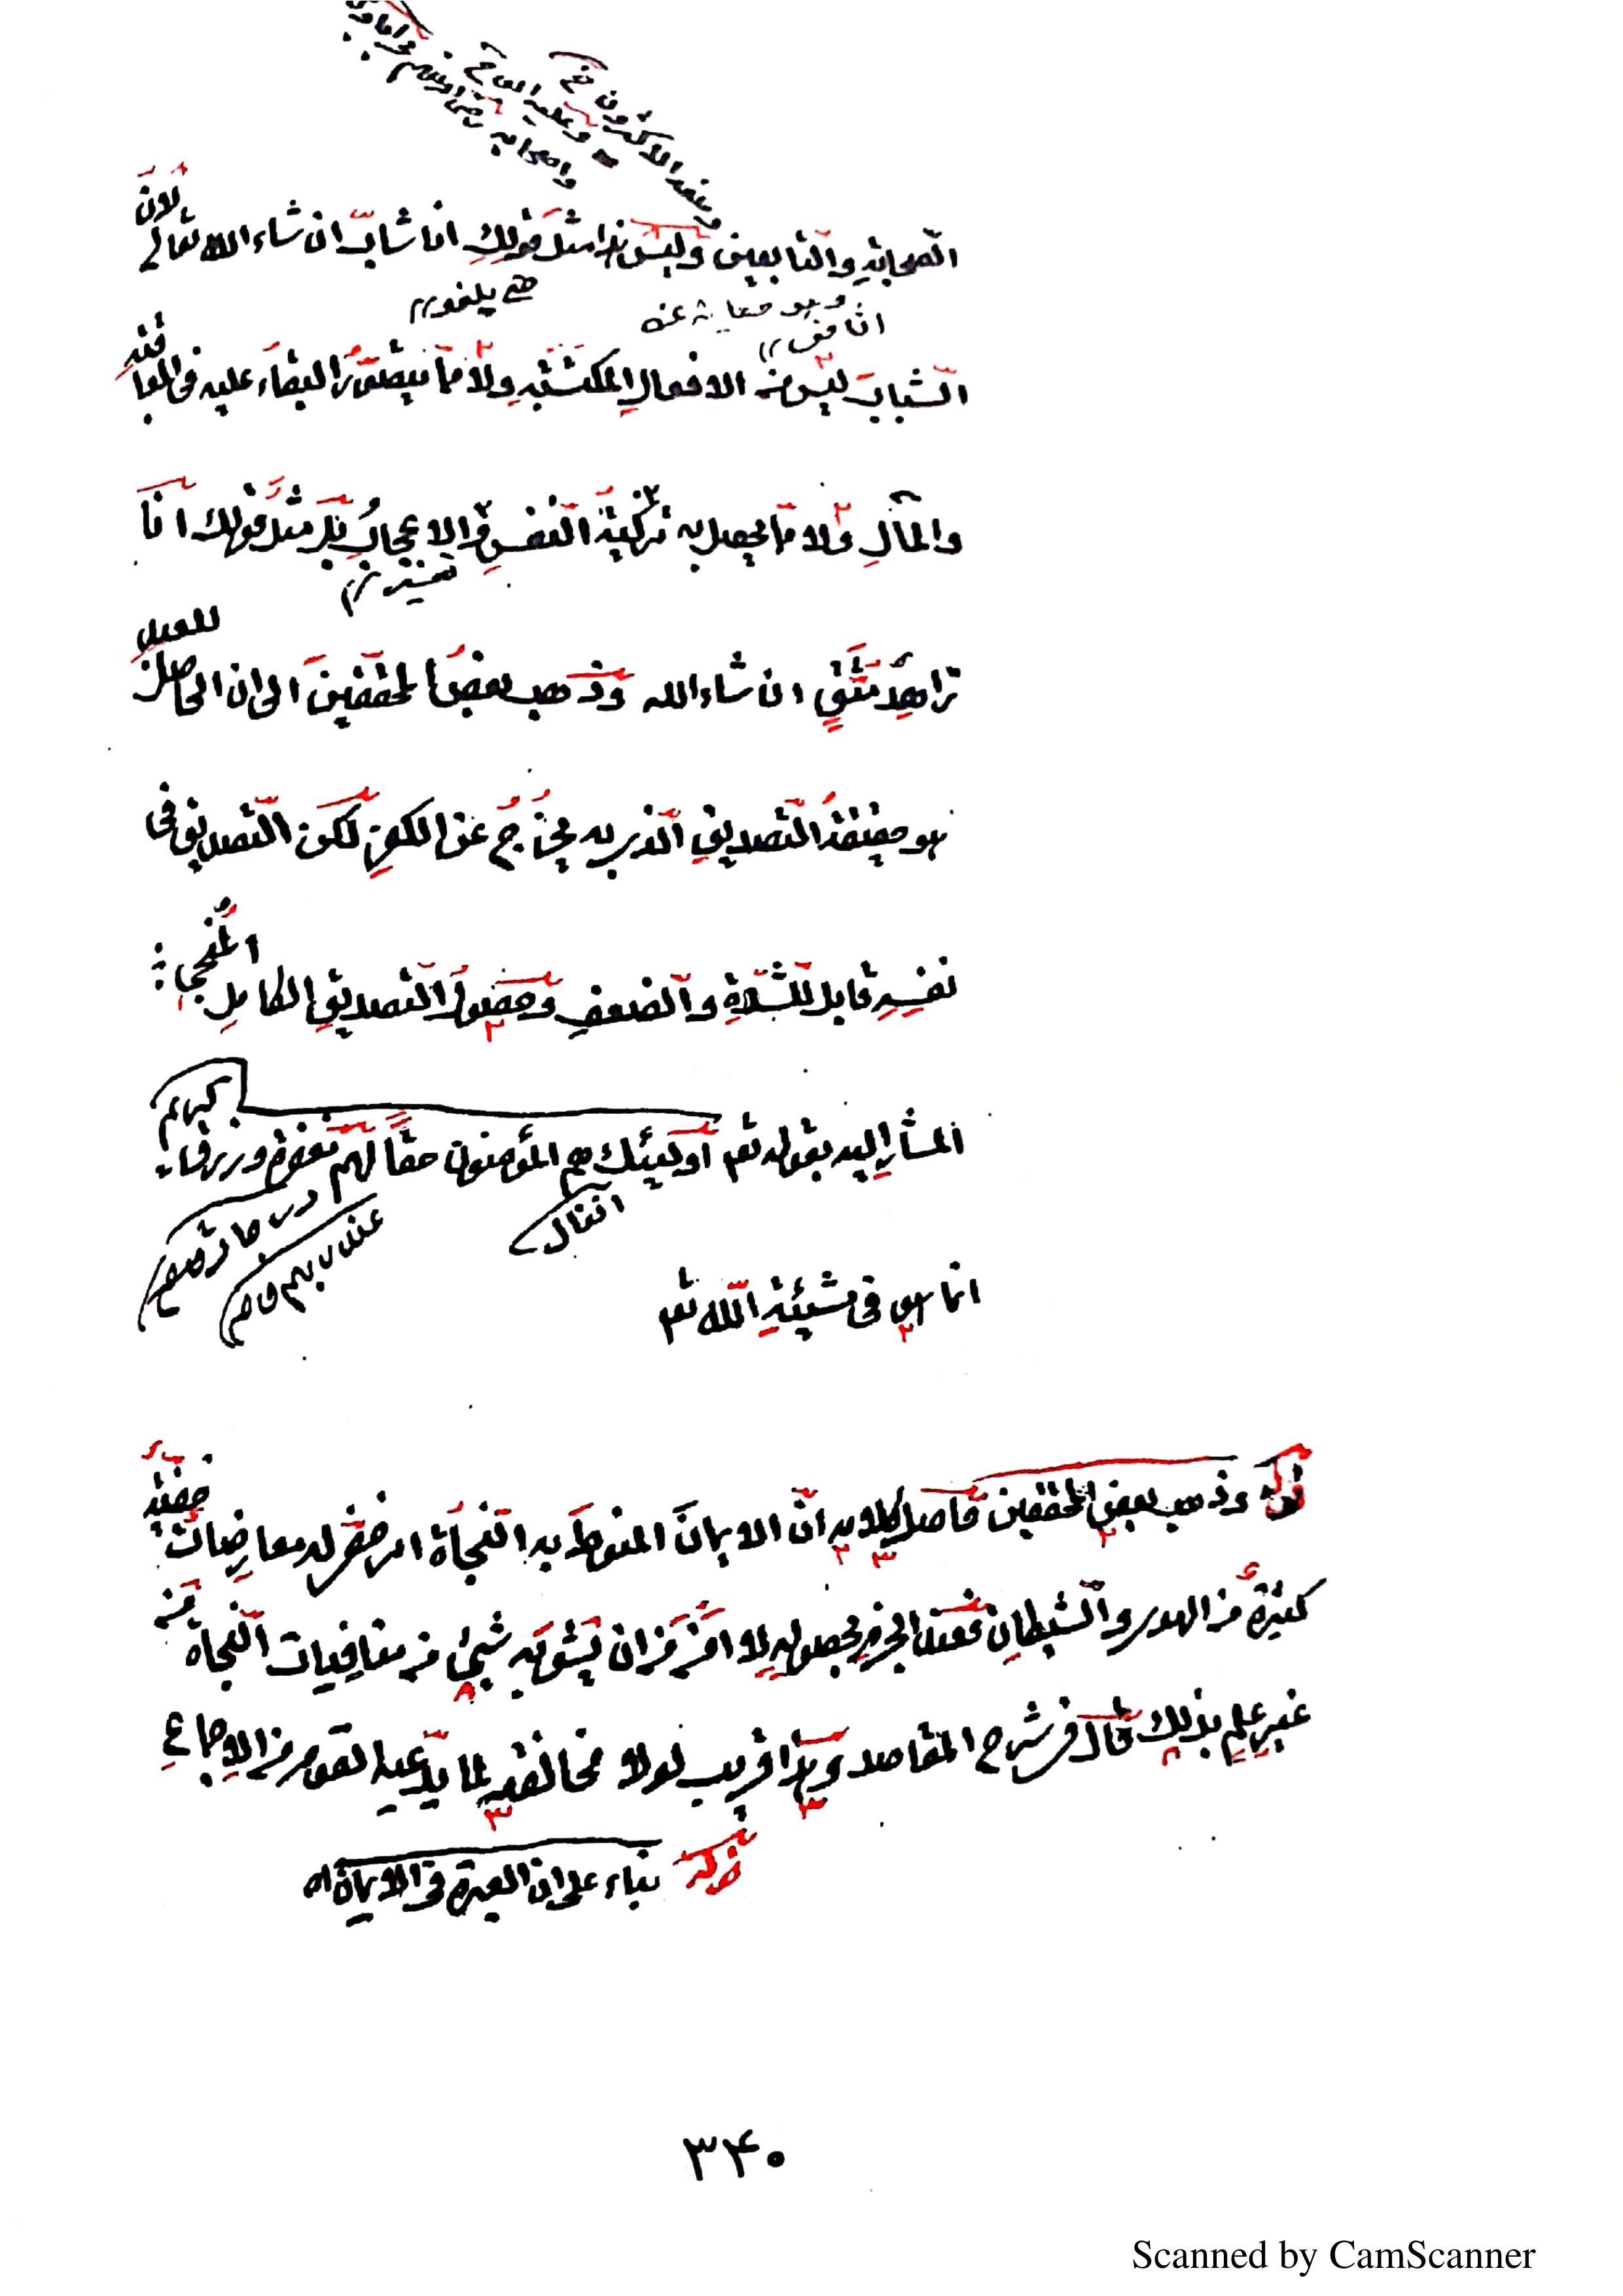 الصحابة والتابعين وليس هذا مثل قولك انا شاب ان شاء الله تعالى لان
هى يلغو
وهو حقا
الشباب ليس من الافعال المكتسبة ولا مما يتصور البقاء عليه فى العاقبة
والمآل ولا مما يحصل به تزكية النفس والاعجاب بل مثل قولك انا
زاهد متقى ان شاء الله وذهب بعض المحققين الى ان الحاصل للعبد
هو حقيقة التصديق الذى به يخرج عن الكفر لكن التصديق فى
نفسه قابل للشدة والضعف وحصول التصديق الكامل المنجى
المشار اليه بقوله تع اولٰئك هم المؤمنون حقا لهم مغفرة ورزق
كريم
درجات
عند ربهم
انفال
انما هو فى مشيئة الله تع
قوله وذهب بعض المحققين حاصل كلامه ان الايمان المنوط به النجاة امر خفى له معارضات خفية
كثيرة من الهوى والشيطان فعند الجزم بحصوله لا امن من ان يشوبه شيئ من منافيات النجاة من
غير علم بذلك قال فى شرح المقاصد وهذا قريب لولا مخالفته لما يدعيه القوم من الاجماع
قوله بناء على ان العبرة فى الايمان اه
٣٤٠
Scanned by CamScanner